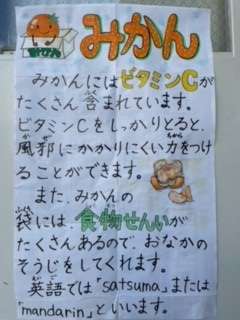 みかん
みかんにはビタミンCが
たくさん含まれています。
ビタミンCをしっかりとると、
風邪にかかりにくい力をつけ
ることができます。
また、みかんの
袋には、食物せんいが
たくさんあるので、おなかの
そうじをしてくれます。
英語では「satsuma」または
「mandarin」といいます。